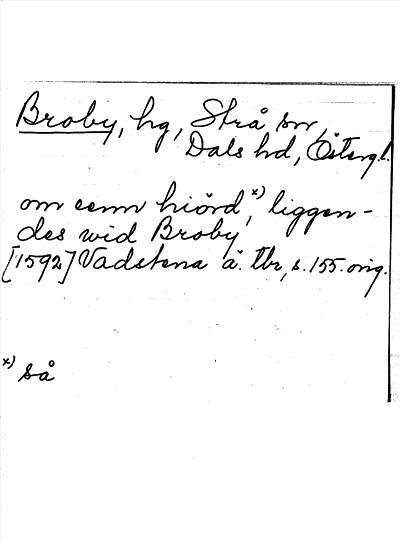 Broby, hg, Strå sn,
Dals hd, Östergl.
om eenn hiörd,x) liggen-
des wid Broby
[1592] Vadstena ä. tbr, s. 155. orig.
x) så